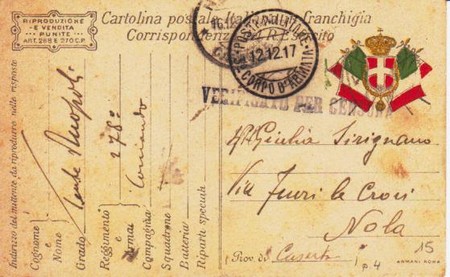 RIPRODUZIONE
E VENDITA
PUNITE
ART. 288 E 270 C.P.
Cartolina postale Italiana in franchigia
Corrispondenza del R. Esercito
12.12.17
CORPO D'ARMATA
VERIFICATO PER CENSURA
Indirizzo del mittente da riprodurre nelle risposte
Cognome
e
Nome
Grado
Reggimento
e
Arma
278º
Compagnia
Comando
Squadrone
Batteria
Riparti speciali
Giulia Sirignano
Via Fuori le Croci
Nola
(Prov di Caserta
p. 4
15